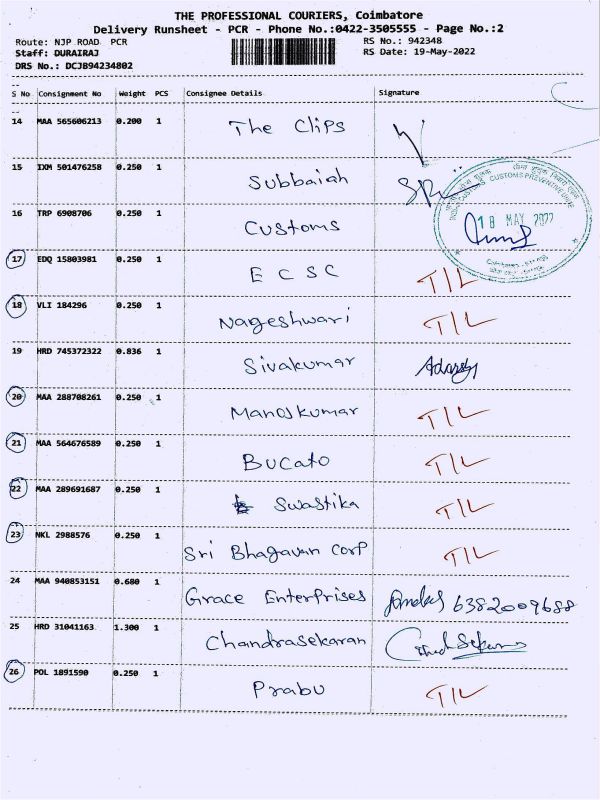 THE PROFESSIONAL COURIERS, Coimbatore
Delivery Runsheet - PCR - Phone No.:0422-3505555 - Page No.:2
Route: NJP ROAD PCR RS No.: 942348
Staff: DURAIRAJ RS Date: 19-May-2022
DRS No.: DCJB94234802
S No Consignment No Weight PCS Consignee Details Signature
14 MAA 565606213 0.200 1 The Clips
15 IXM 501476258 0.250 1 Subbaiah
16 TRP 6908706 0.250 1 Customs
INDIAN CUSTOMS CUSTOMS PREVENTIVE UNIT
18 MAY 2022
17 EDQ 15803981 0.250 1 E C S C T/L
18 VLI 184296 0.250 1 Nageshwari T/L
19 HRD 745372322 0.836 1 Sivakumar
20 MAA 288708261 0.250 1 Manojkumar T/L
21 MAA 564676589 0.250 1 Bucato T/L
22 MAA 289691687 0.250 1 Swastika T/L
23 NKL 2988576 0.250 1 Sri Bhagavan Corp T/L
24 MAA 940853151 0.680 1 Grace Enterprises 6382009688
25 HRD 31041163 1.300 1 Chandrasekaran
26 POL 1891590 0.250 1 Prabu T/L